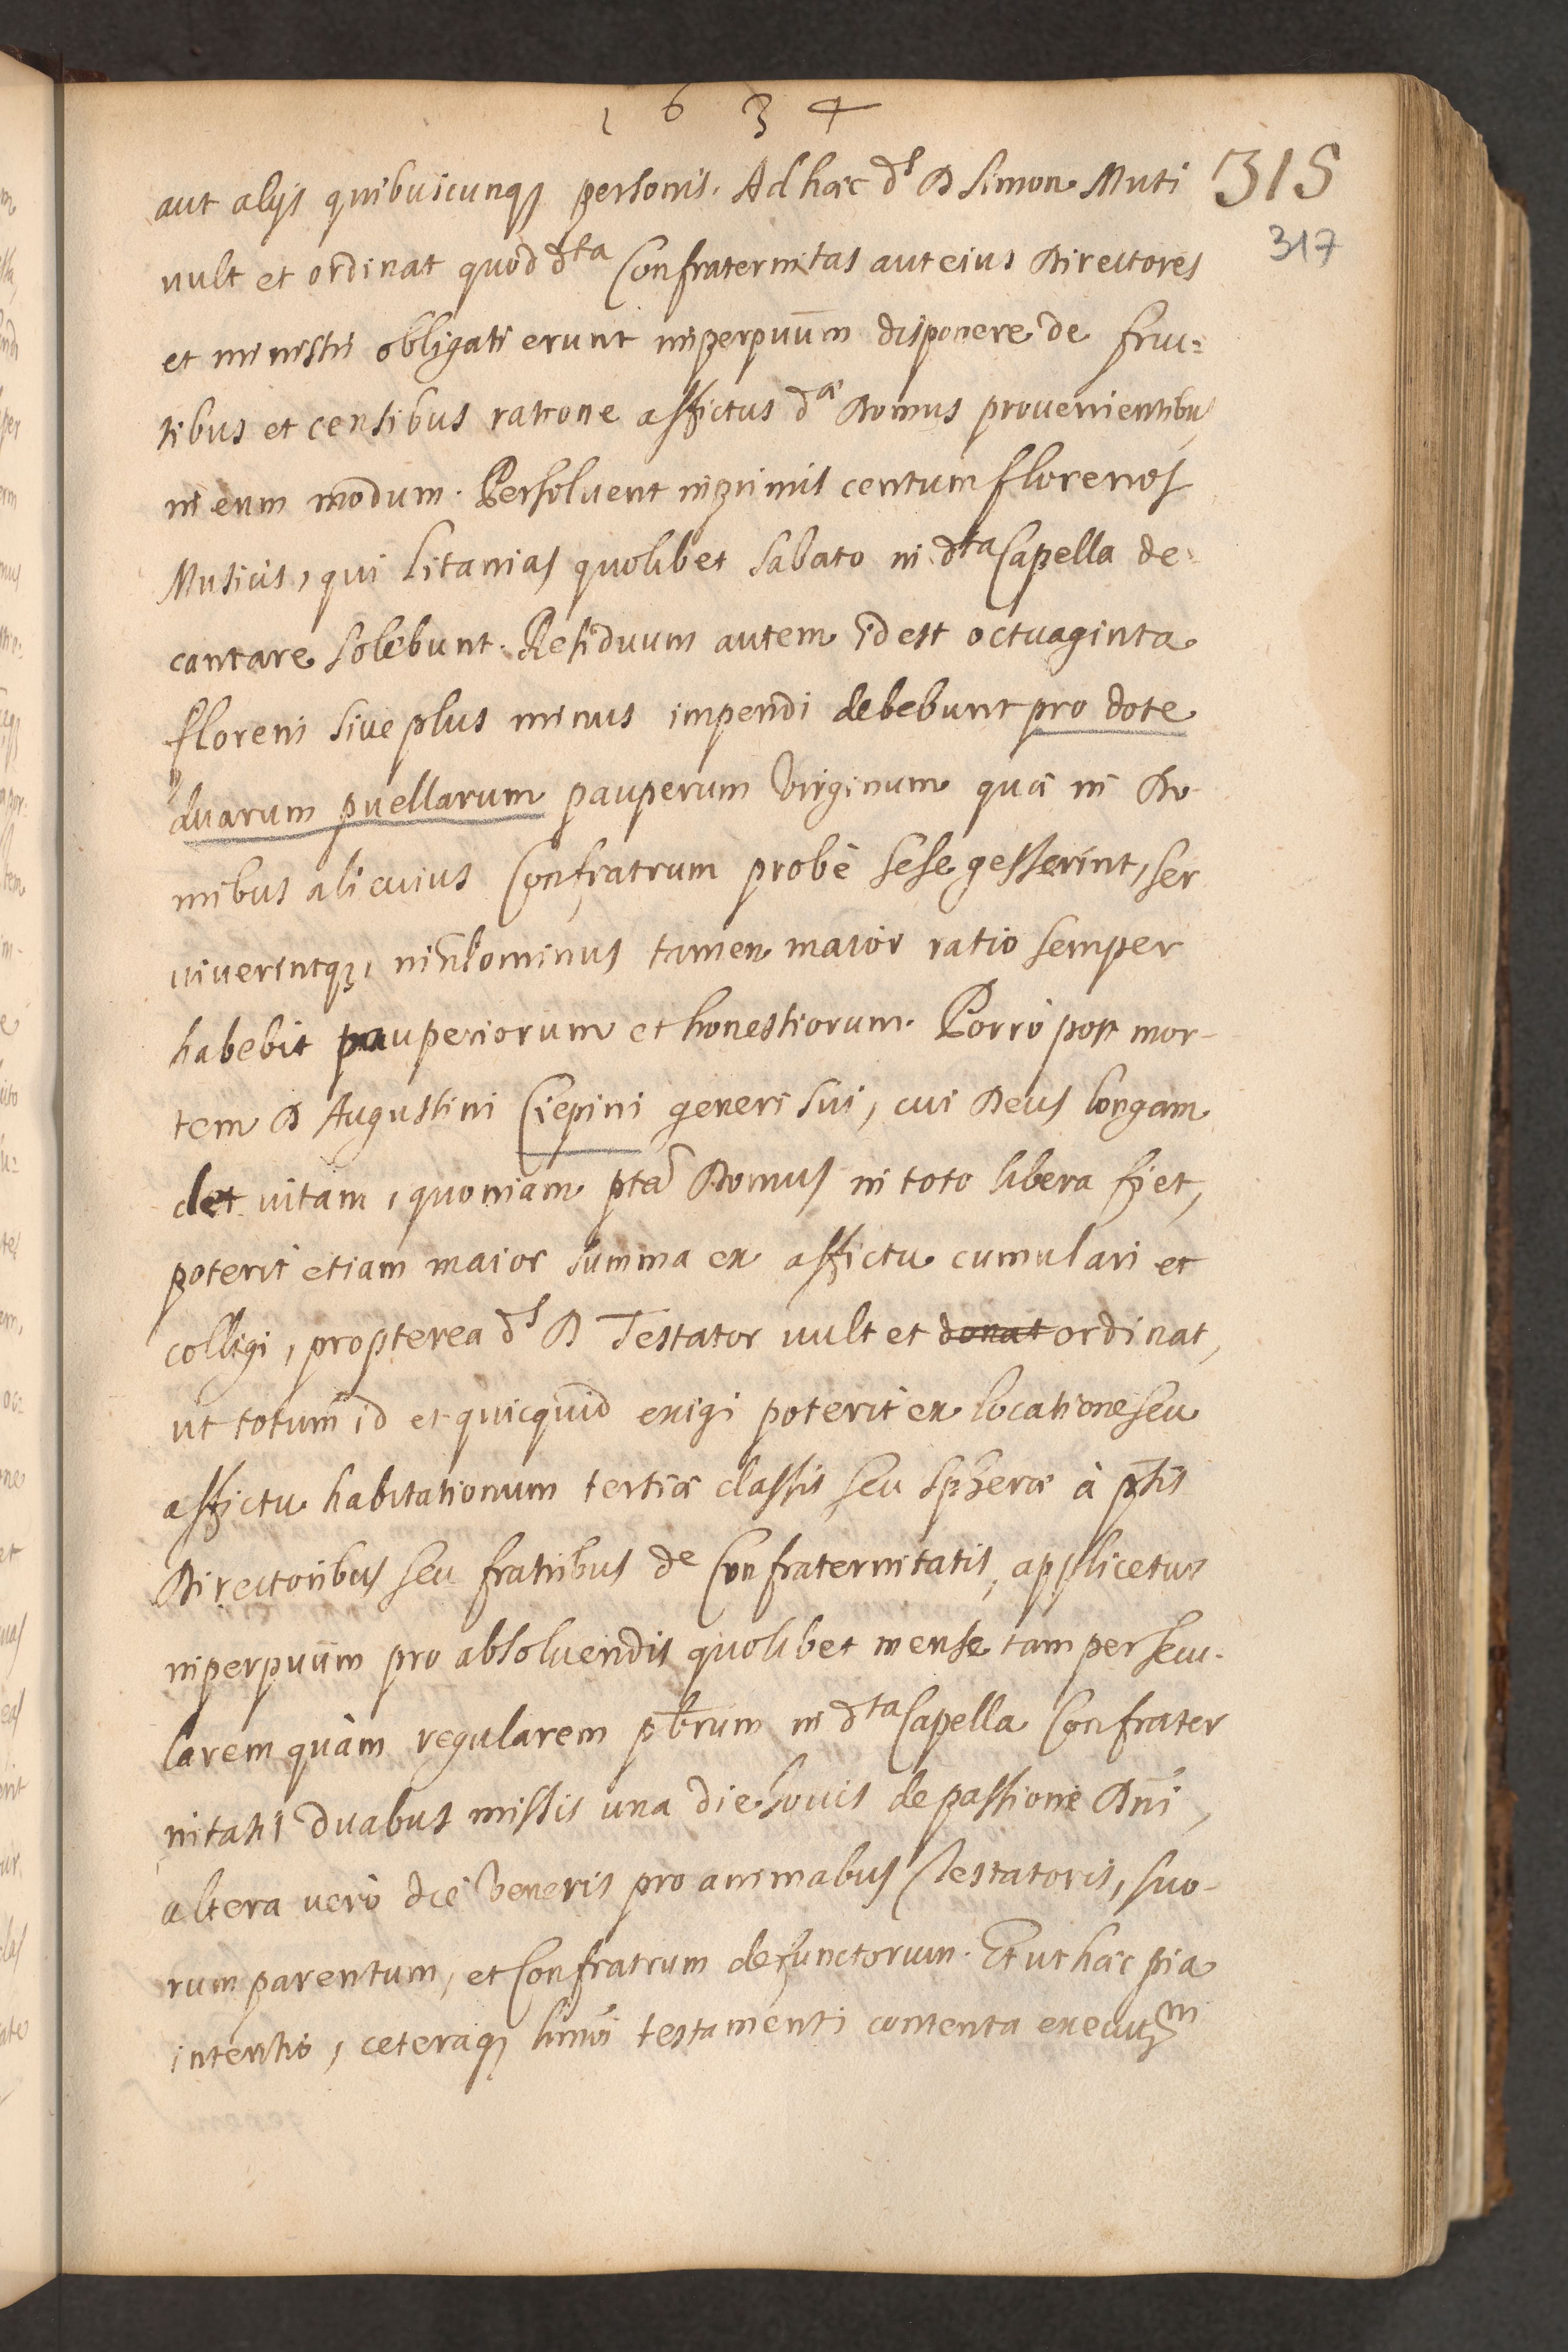 1634
aut alijs quibuscunq; personis. Ad hæc ds D Simon Muti 315
uult et ordinat quod dta Confraternitas aut eius Directores 317
et ministri obligati erunt inperpuum disponere de fruc=
tibus et censibus ratione affictus dæ Domus prouenientibus
in eum modum. Persoluent inprimis centum florenos
Musicis, qui Litanias quolibet sabato in dta Capella de-
cantare solebunt. Residuum autem idest octuaginta
floreni siue plus minus impendi debebunt pro dote
duarum puellarum pauperum Virginum quæ in Do-
mibus alicuius Confratrum probè sese gesserint, ser
uiuerintq;, nihilominus tamen maior ratio semper
habebit pauperiorum et honestiorum. Porrò post mor-
tem D Augustini Ciepini generi sui, cui Deus longam
det uitam, quoniam pta Domus in toto libera fiet,
poterit etiam maior summa ex affictu cumulari et
colligi, propterea ds D Testator uult et donat ordinat,
ut totum id et quicquid exigi poterit ex locatione seu
affictu habitationum tertiæ classis seu spheræ à ptis
Directoribus seu fratribus de Confraternitatis, applicetur
inperpuum pro absoluendis quolibet mense tam per secu-
larem quàm regularem pbrum in dta Capella Confrater
nitatis duabus missis una die Iouis de passione Dni,
altera uerò die Veneris pro animabus Testatoris, suo-
rum parentum, et Confratrum defunctorum. Et ut hæc pia
intentio, ceteraq; humoi testamenti contenta executnm